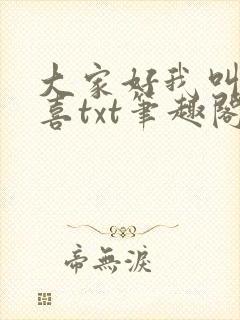 大家好我叫
喜txt筆趣閣
帝無淚